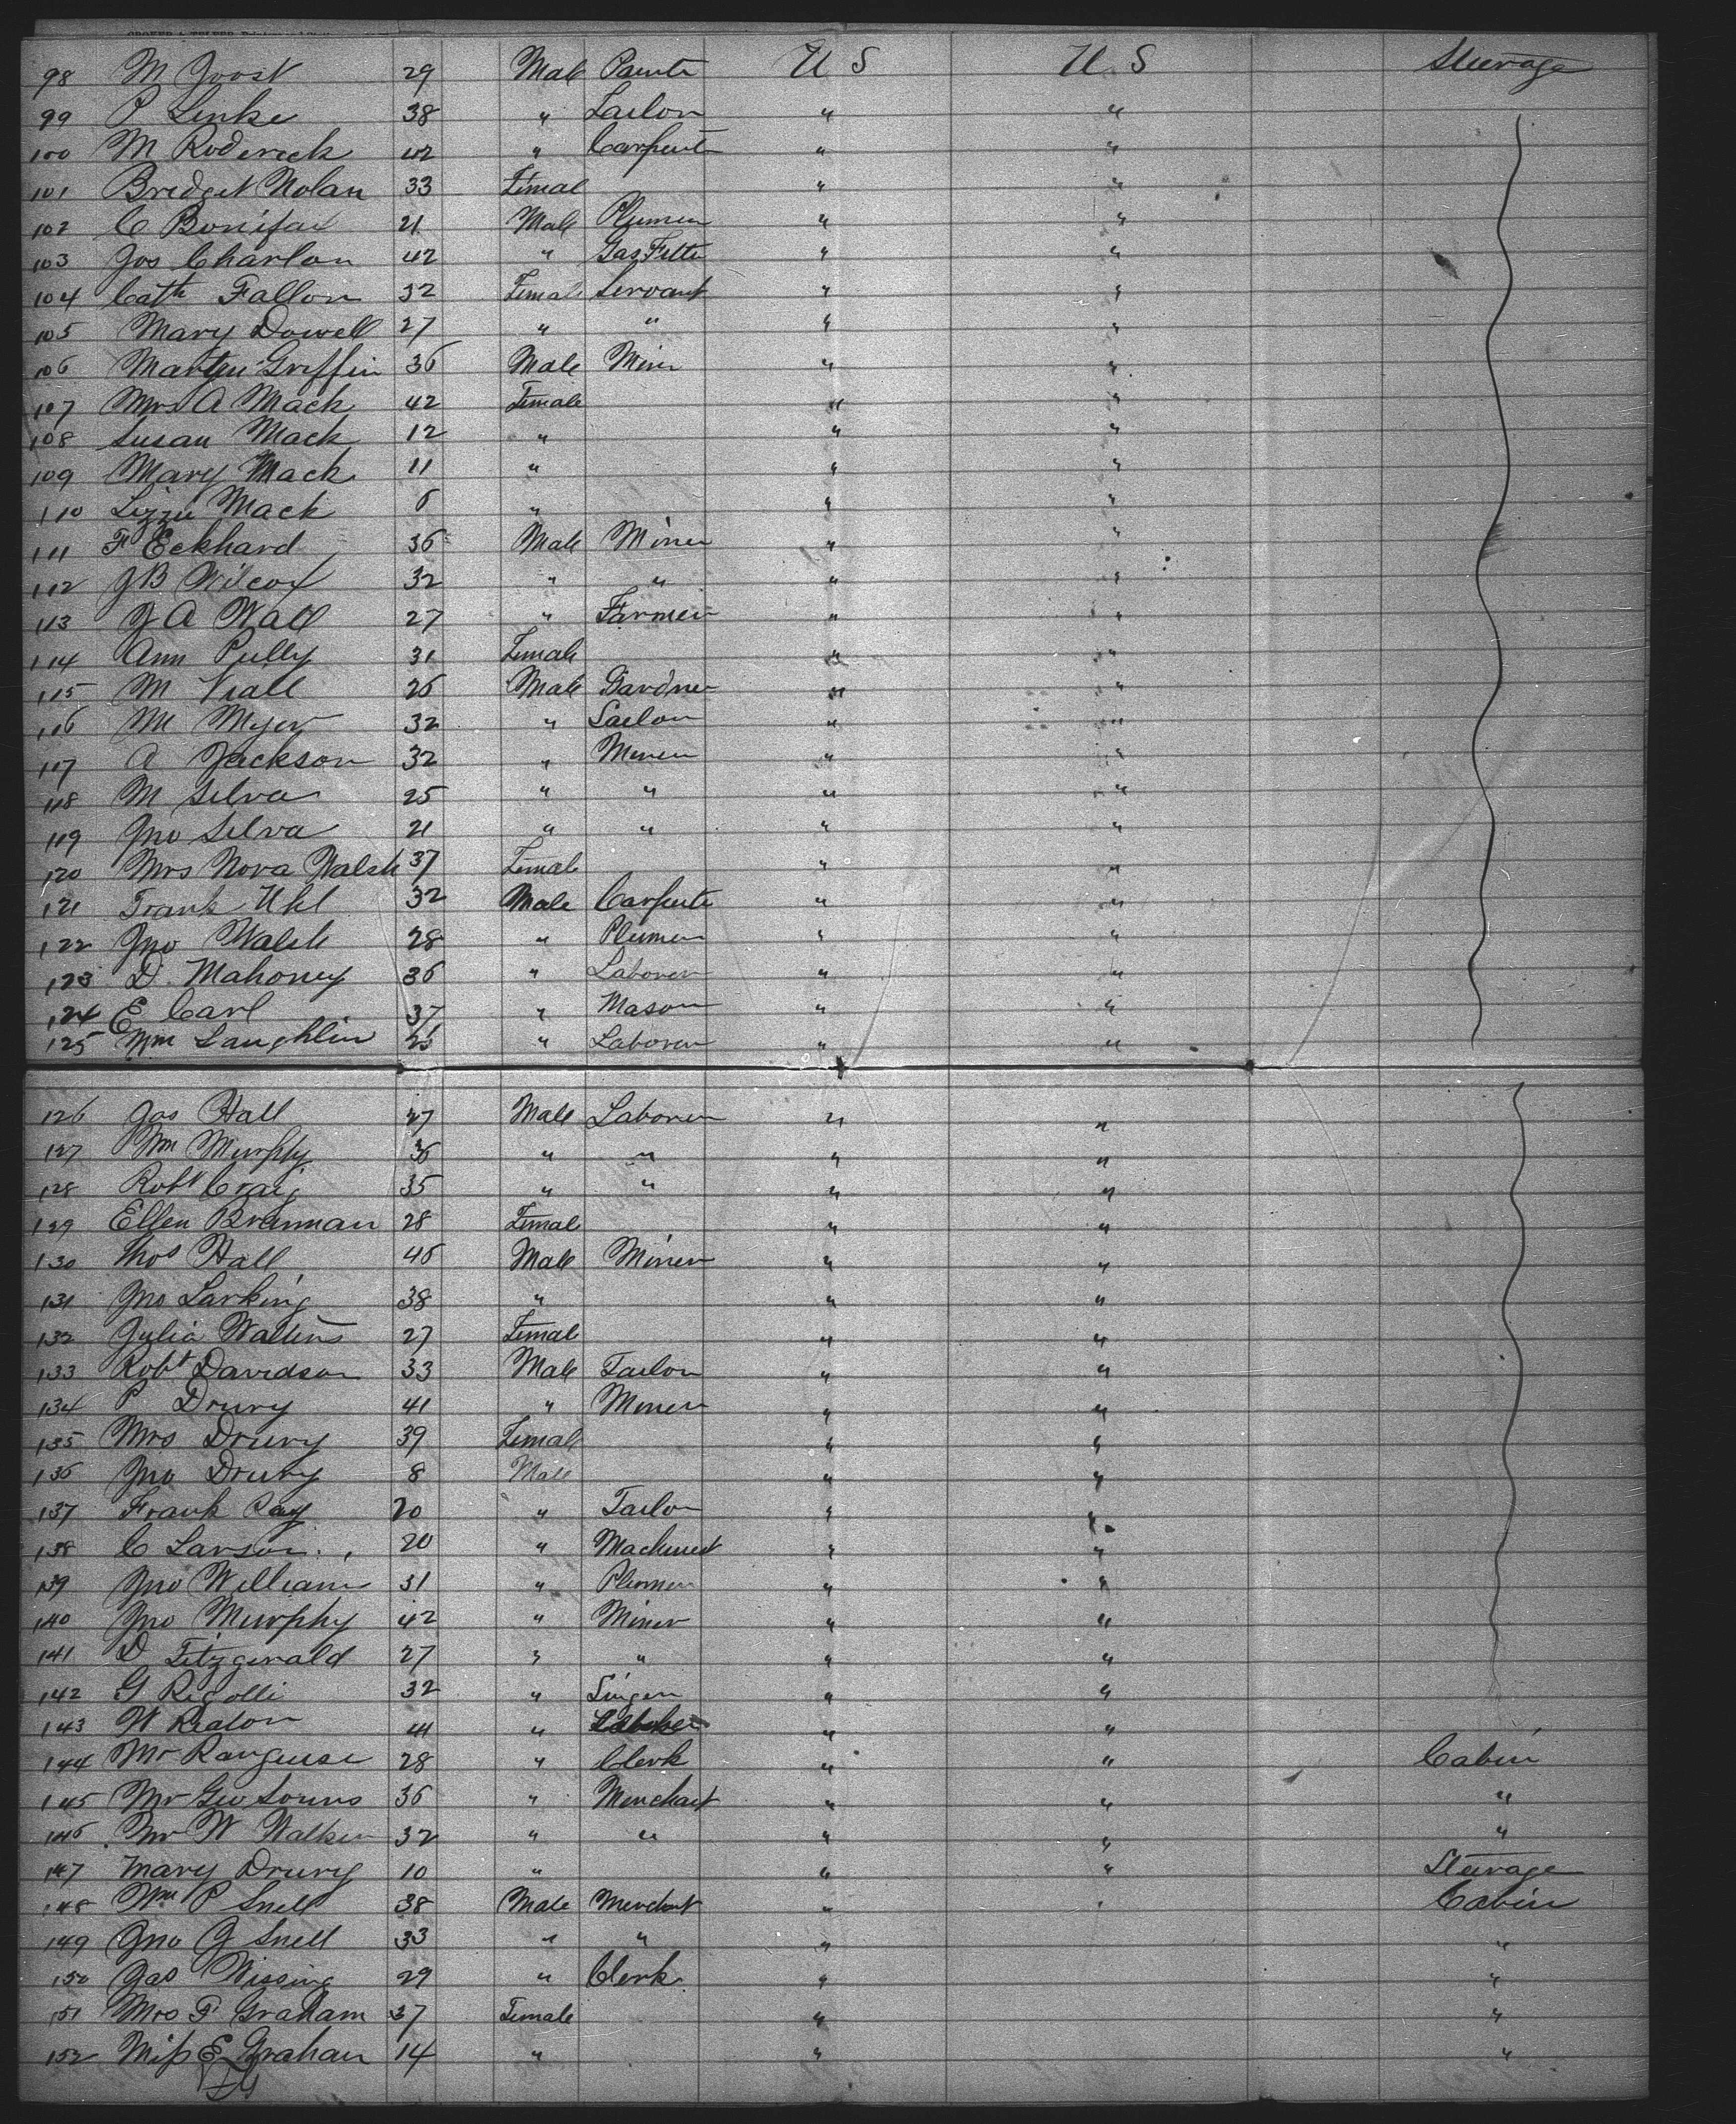 98 M Joost 29 Male Painter U S U. S Steerage
99 P Linke 38 " Tailor " "
100 M Roderick 42 " Carpent " "
101 Bridget Nolan 33 Femal " "
102 C Bonifax 21 Male Plumer " "
103 Jos Charlon 42 " Gas Fitter " "
104 Cath Fallon 32 Female Servant " "
105 Mary Dowell 27 " " " "
106 Martin Griffin 36 Male Miner " "
107 Mrs A Mack 42 Female " "
108 Susan Mack 12 " " "
109 Mary Mack 11 " " "
110 Lizzie Mack 6 " " "
111 F Eckhard 36 Male Miner " "
112 J B Wilcox 32 " " " "
113 J A Wall 27 " Farmer " "
114 Ann Pully 31 Female " "
115 M Viall 26 Male Gardner " "
116 M Myer 32 " Sailor " "
117 A Jackson 32 " Miner " "
118 M Silva 25 " " " "
119 Jno Silva 21 " " " "
120 Mrs Nora Walsh 37 Female " "
121 Frank Uhl 32 Male Carpenter " "
122 Jno Walsh 28 " Plumer " "
123 D. Mahoney 36 " Laborer " "
124 E Carl 37 " Mason " "
125 Wm Laughlin " Laborer " "
126 Jas Hall 27 Male Laborer " "
127 Wm Murphy 36 " " " "
128 Robt Craig 35 " " " "
129 Ellen Brannan 28 Femal " "
130 Thos Hall 46 Male Miner " "
131 Jno Larking 38 " " "
132 Julia Walters 27 Femal " "
133 Robt Davidson 33 Male Tailor " "
134 P Drury 41 " Miner " "
135 Mrs Drury 39 Female " "
136 Jno Drury 8 Male " "
137 Frank Ray 20 " Tailor " "
138 C Larson 20 " Machinest " "
139 Jno William 31 " Plumer " "
140 Jno Murphy 42 " Miner " "
141 D Fitzgerald 27 " " " "
142 G Rigolli 32 " Singer " "
143 W Ridon 41 " " "
144 Mr 28 " Clerk " " Cabin
145 Mr Geo 36 " Merchant " " "
146 Mr W Walker 32 " " " " "
147 Mary Drury 10 " " " Steerage
148 Wm P Snell 38 Male Merchant " " Cabin
149 Jno G Snell 33 " " " "
150 Jas Wissing 29 " Clerk " "
151 Mrs F Graham 37 Female " "
152 Miss E Graham 14 " " "